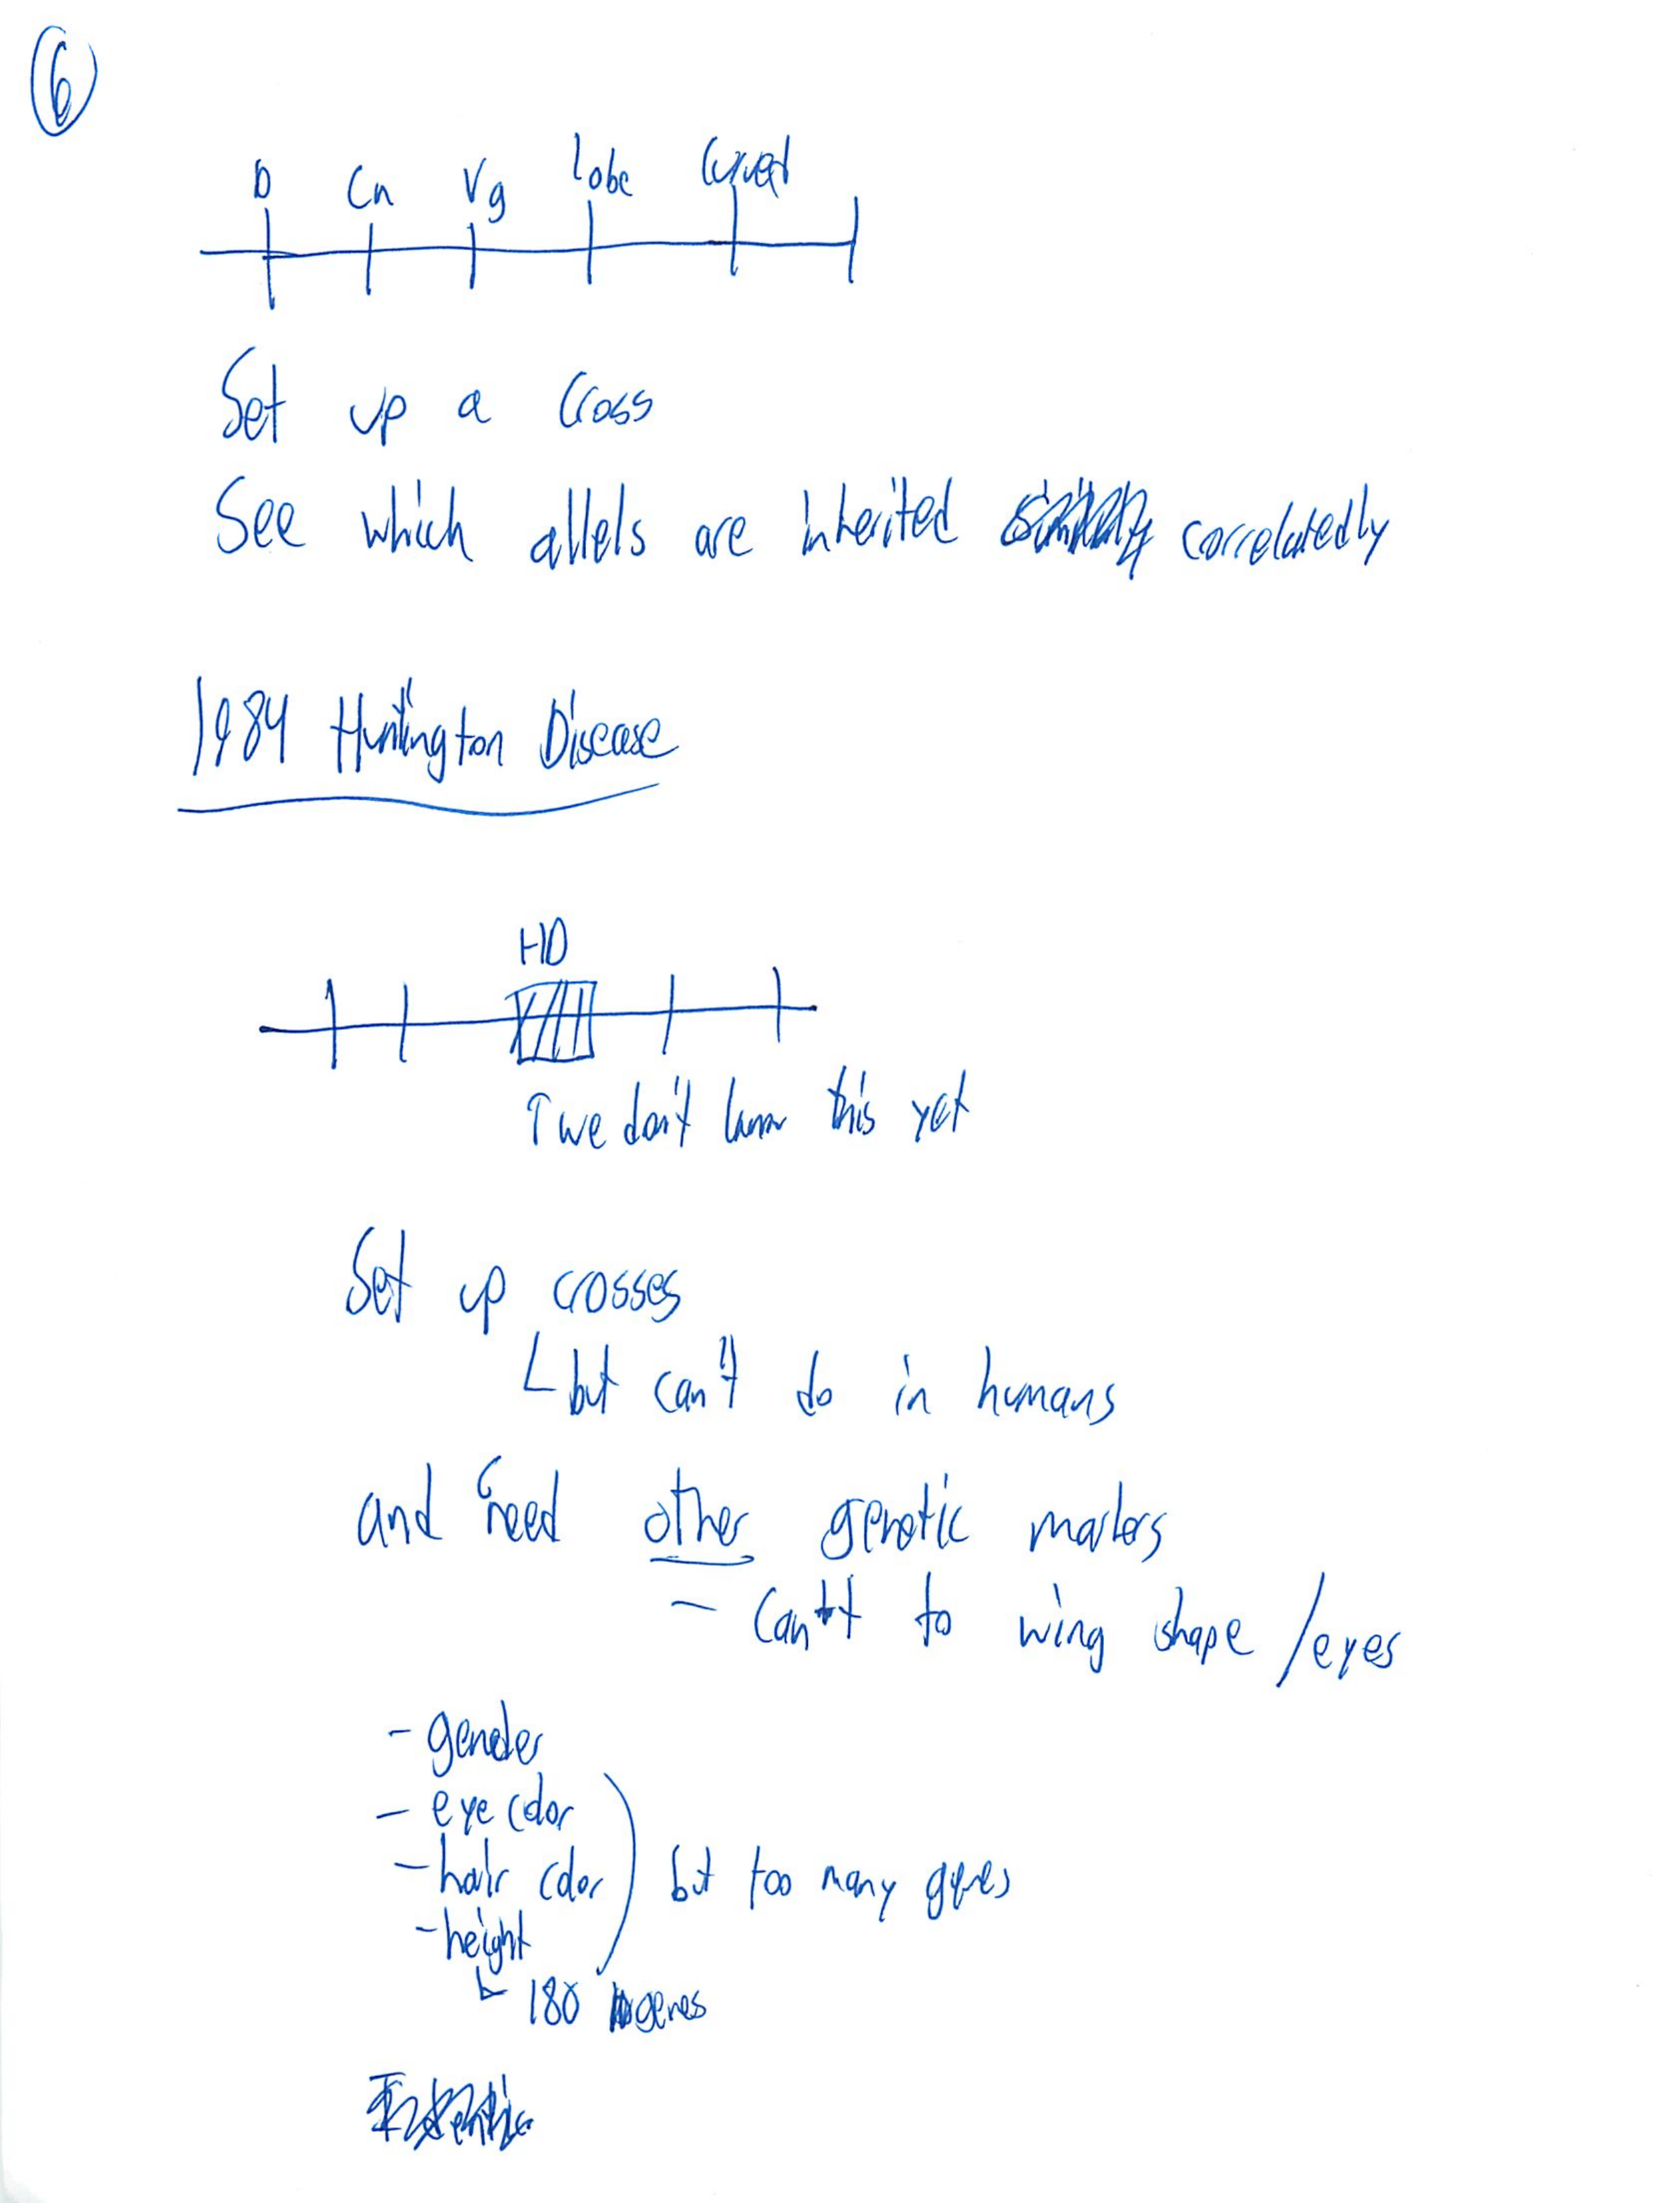 6
b Cn Vg lobe Curved
Set up a Cross
See which allels are inherited correlatedly
1984 Huntington Disease
HD
↑ we don't know this yet
Set up crosses
but can't do in humans
and need other genetic markers
- Can't to wing shape / eyes
- gender
- eye color
- hair color
but too many genes
- height
180 genes